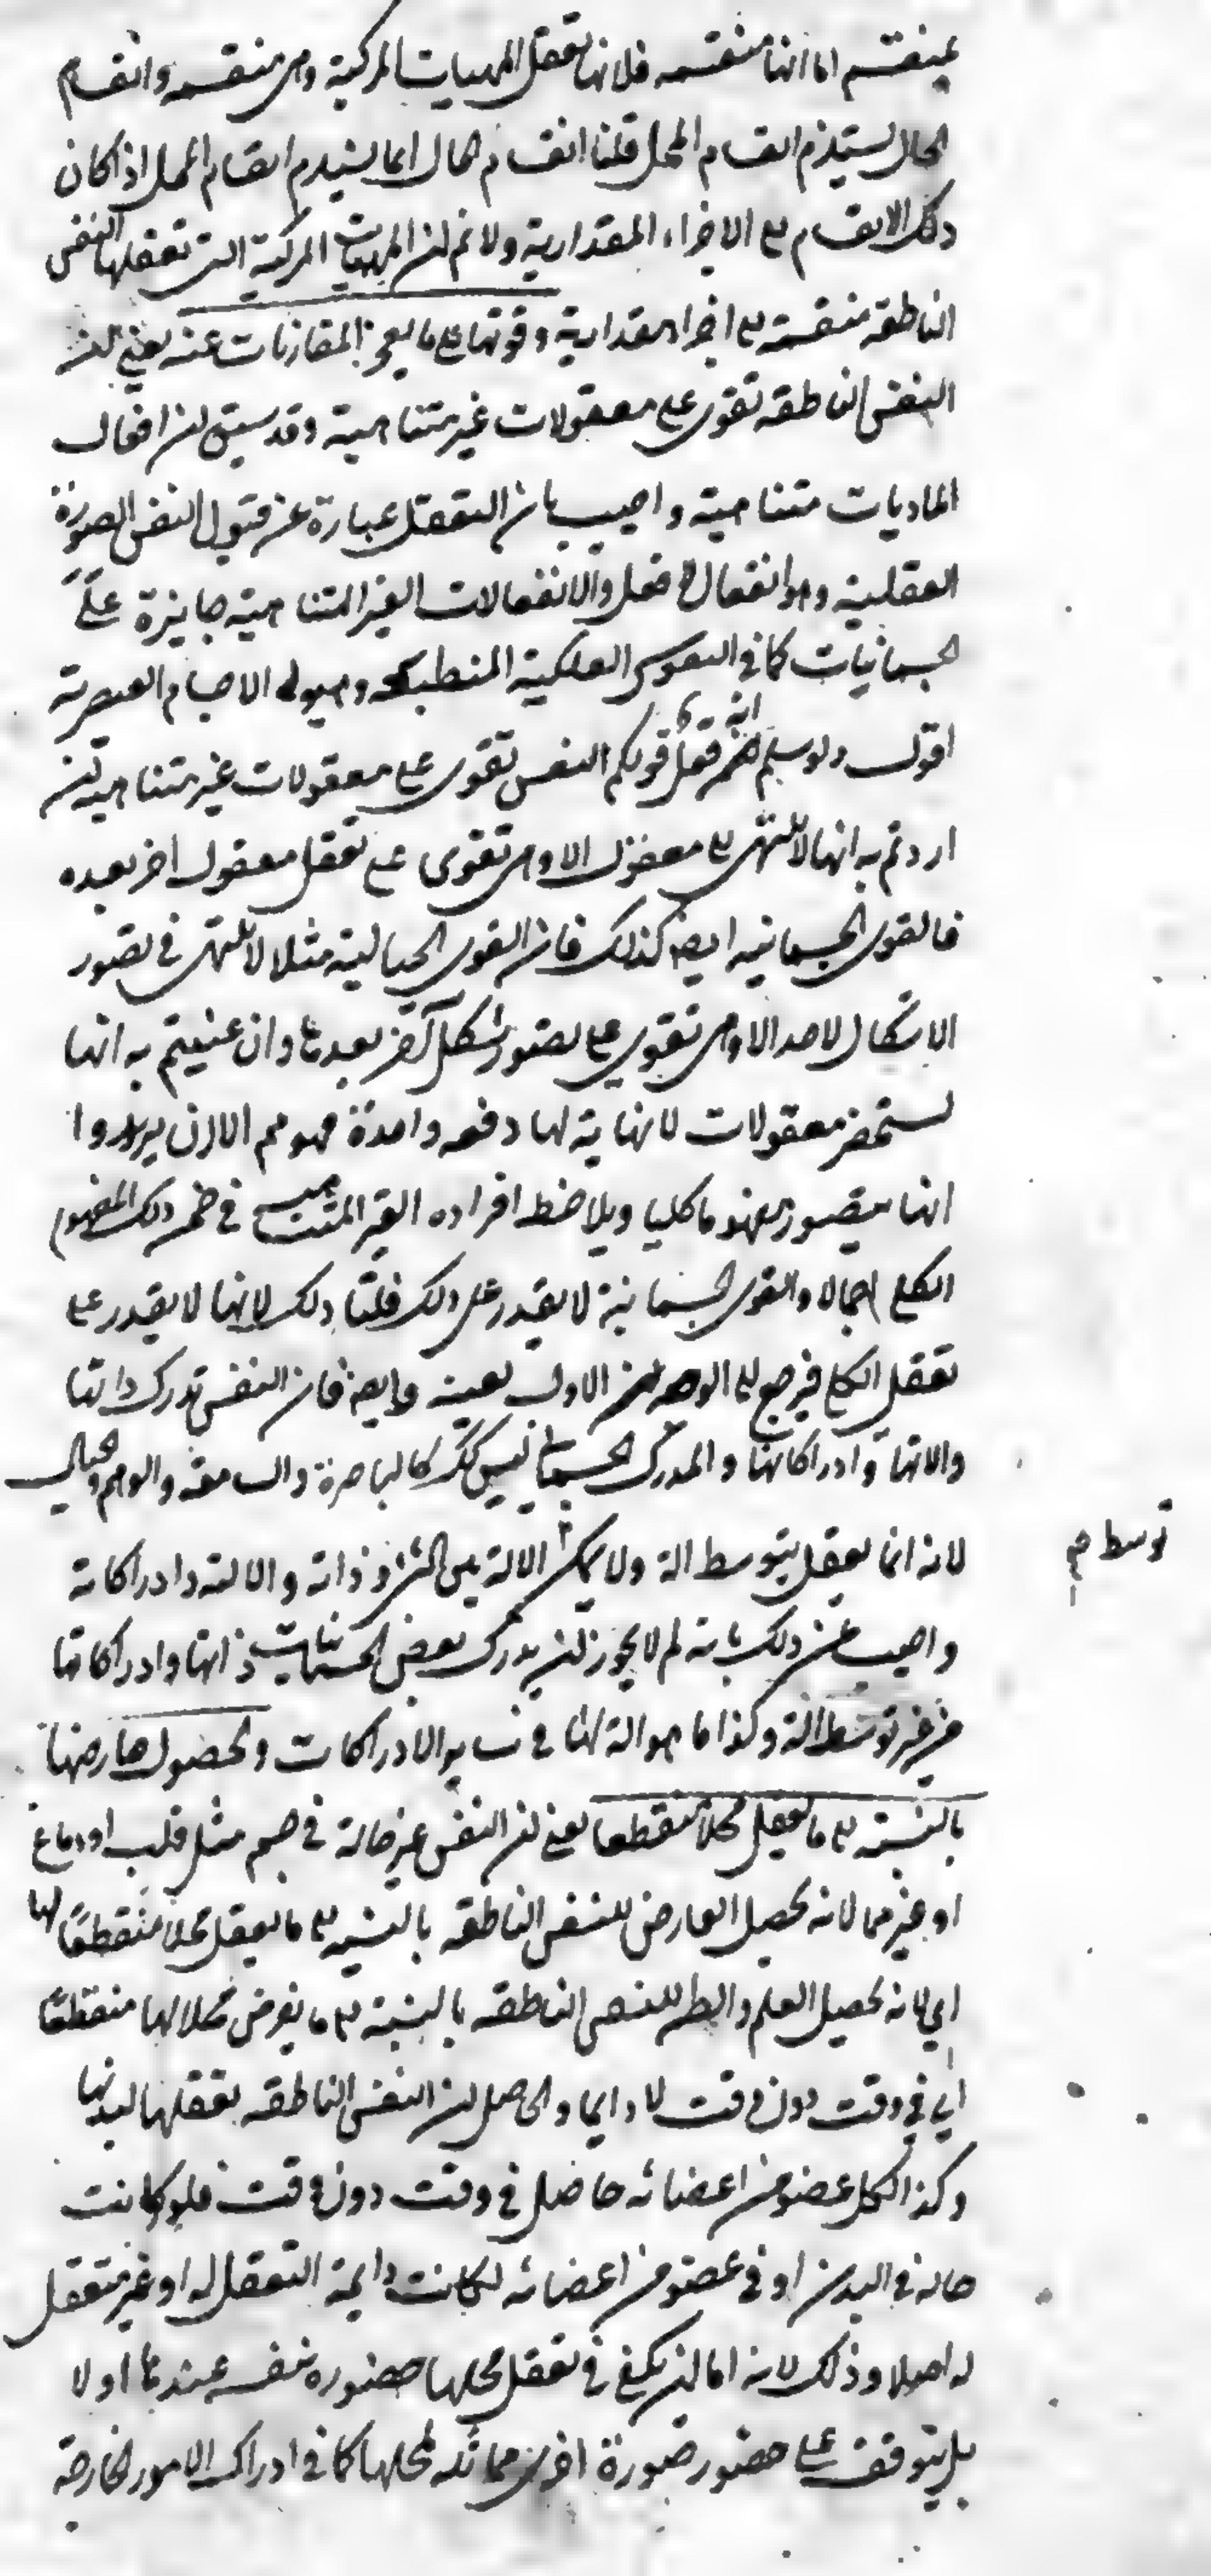 عينقسم اما انها منقسمه فلانها تعقل المهيات المركبة وهى منقسمه وانقسام
الحال يستلزم انقسام المحل قلنا انقسام الحال انما يستلزم انقسام المحل اذا كان
ذلك الانقسام الى الاجزاء المقدارية ولانم ان المهيات المركبة التى تعقلها النفس
الناطقه منقسمه الى اجزاء مقدارية وقوتها على ما يعجز المقارنات عنه يعنى ان
النفس الناطقه تقوى على معقولات غير متناهية وقد سبق ان افعال
الماديات متناهية واجيب بان التعقل عبارة عن قبول النفس الصورة
العقلية وهو انفعال لا فعل والانفعالات الغير المتناهية جايزة على
الجسمانيات كما فى النفوس الفلكية المنطبعه وهيولى الاجسام العنصرية
اقول ولو سلم انه فعل فقولكم النفس تقوى على معقولات غير متناهية ان
اردتم به انها لا تنتهى الى معقول الا وهى تقوى على تعقل معقول اخر بعده
فالقوى الجسمانيه ايضا كذلك فان القوى الخيالية مثلا لا تنتهى فى تصور
الاشكال لاحد الا وهى تقوى على تصور شكل آخر بعدها وان عنيتم به انها
تستحضر معقولات لا نهاية لها دفعه واحدة فهو مم الا ان يريدوا
انها يتصور مفهوما كليا ويلاحظ افراده الغير المتناهية فى ضمن ذلك المفهوم
الكلى اجمالا والقوى الجسمانية لا يقدر على ذلك قلنا ذلك لانها لا يقدر على
تعقل الكلى فيرجع الى الوجه الاول بعينه وايضا فان النفس تدرك ذاتها
والاتها وادراكاتها والمدرك الجسمانى ليس كك كالباصرة والسامعة والوهم والخيال
لانه انما يعقل بتوسط الة ولا يمكن الالة بين الشئ وذاته والالته وادراكاته
توسط صح
واجيب عن ذلك بانه لم لا يجوز ان يدرك بعض الجسمانيات ذاتها وادراكاتها
من غير توسط الة وكذا ما هو الة لها فى ساير الادراكات ولحصول عارضها
بالنسبة الى ما يعقل محلا منقطعا يعنى ان النفس غير حالة فى جسم مثل قلب او دماغ
او غيرهما لانه يحصل العارض للنفس الناطقه بالنسبه الى ما يعقل محلا منقطعا لها
اى لانه يحصل العلم للنفس الناطقه بالنسبة الى ما يفرض محلا لها منقطعا
اى فى وقت دون وقت لا دايما والحاصل ان النفس الناطقه تعقلها لبدنها
وكذا لكل عضو من اعضائه حاصل فى وقت دون وقت فلو كانت
حالة فى البدن او فى عضو من اعضائه لكانت دايمة التعقل له او غير متعقل
له اصلا وذلك لانه اما ان يكفى فى تعقل محلها حضوره بنفسه عندها اولا
بل يتوقف على حضور صورة اخرى مماثلة لمحلها كما فى ادراك الامور الخارجة